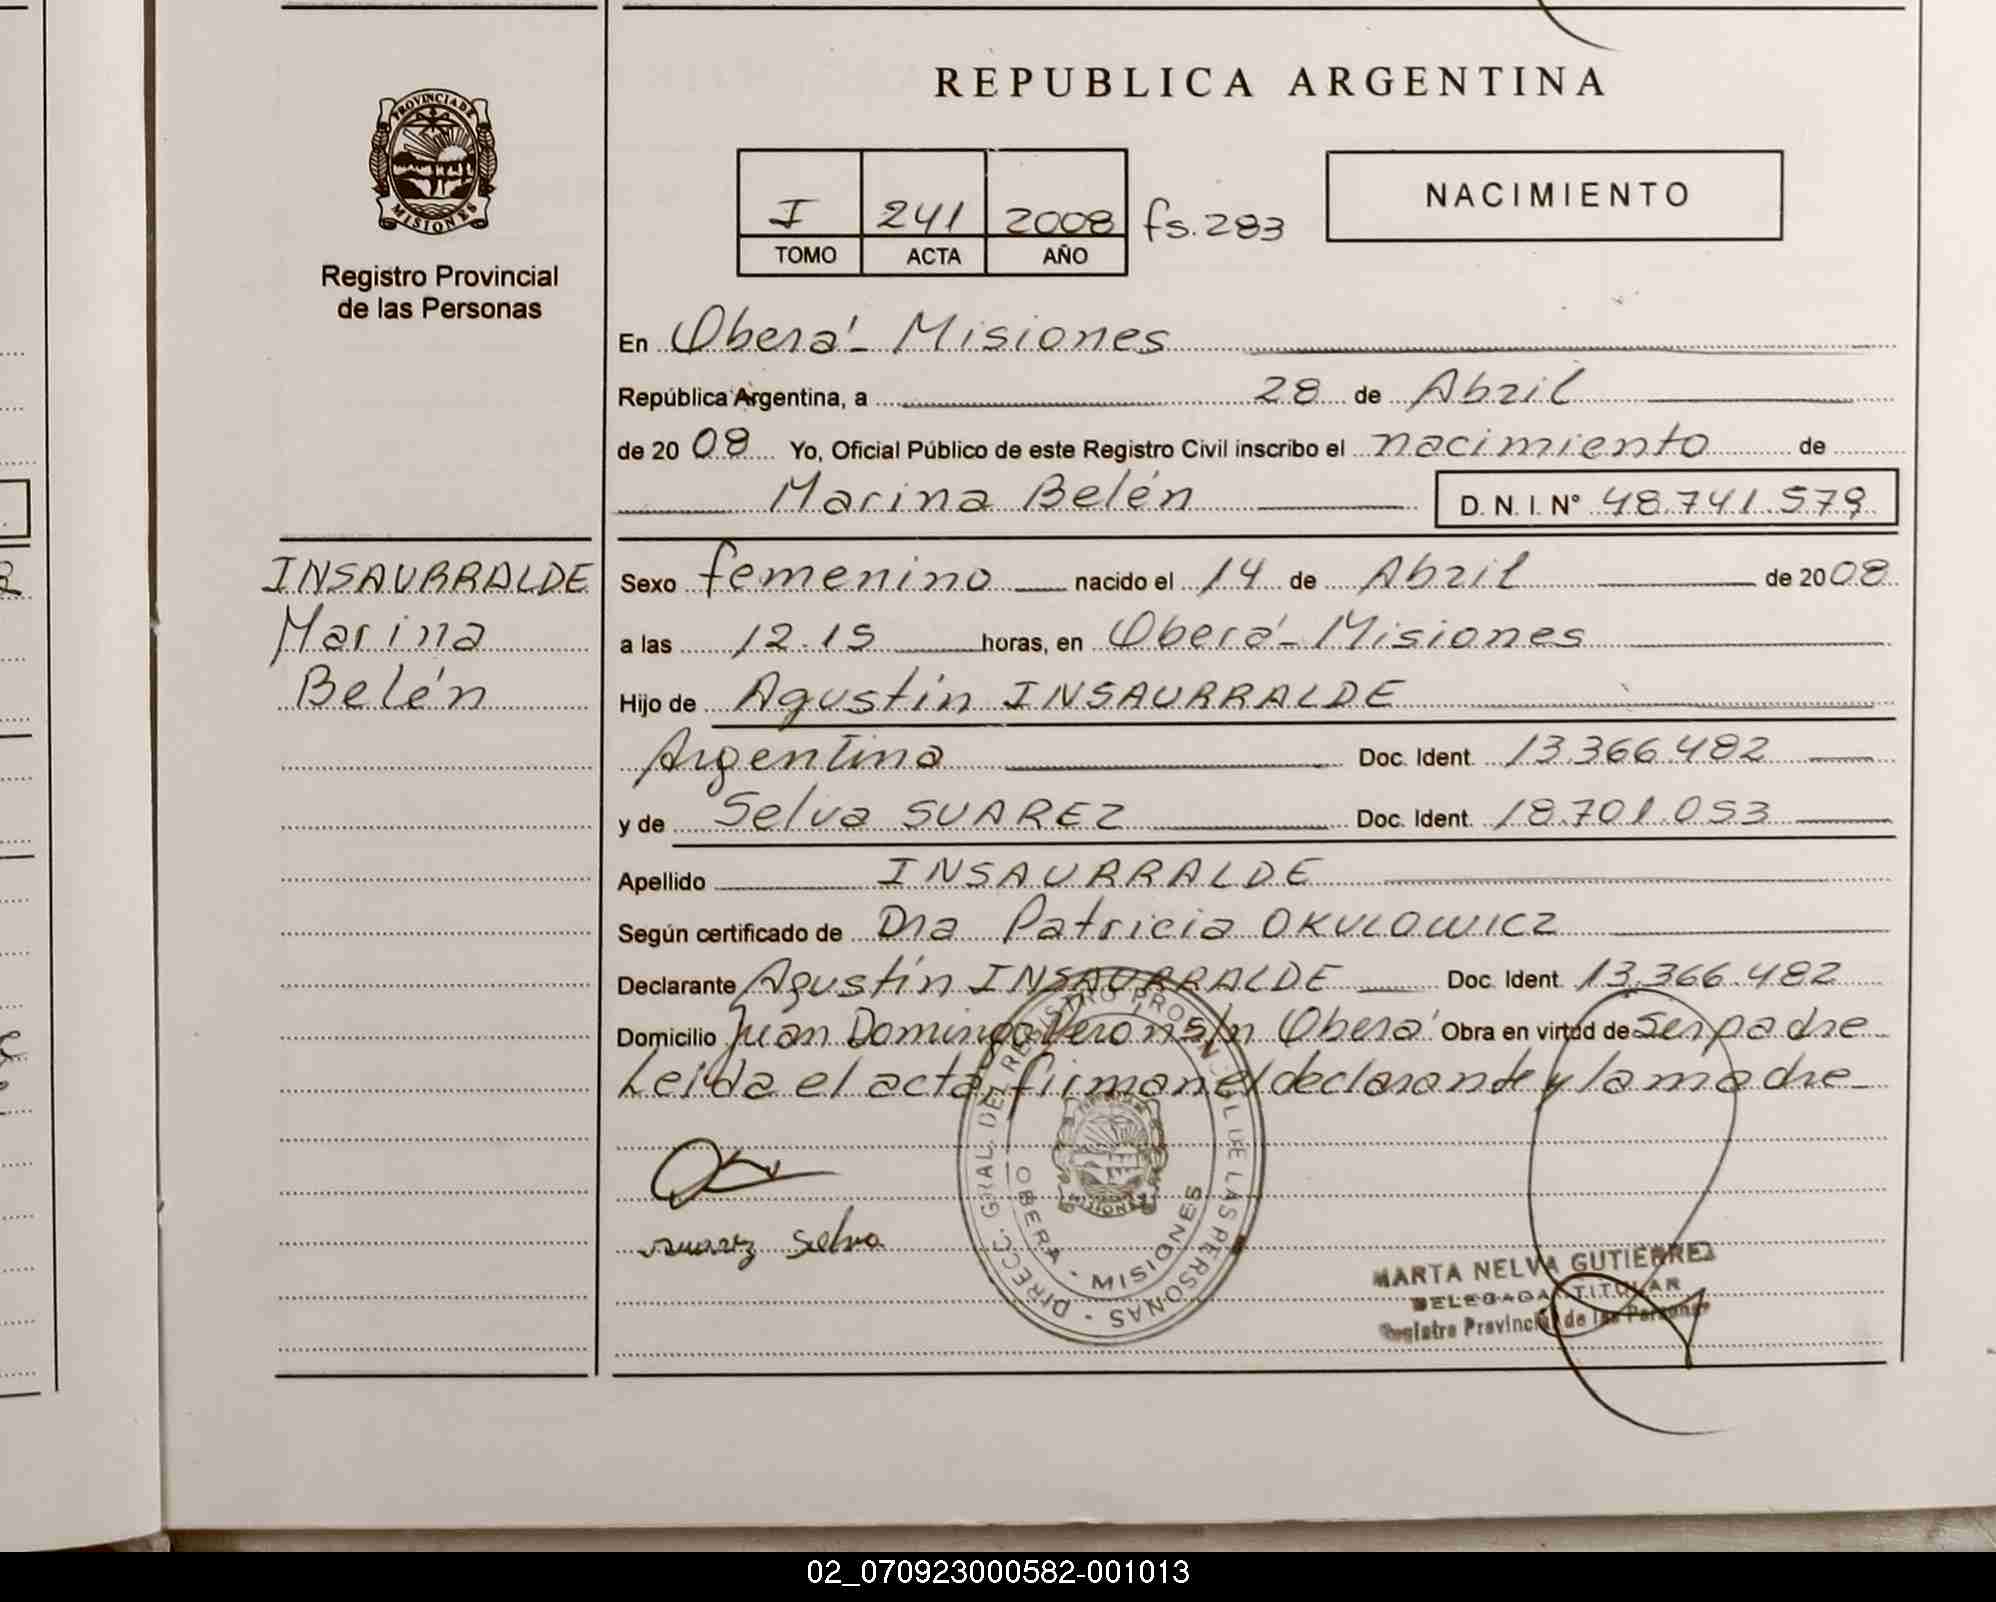 REPUBLICA ARGENTINA
PROVINCIA DE
MISIONES
Registro Provincial
de las Personas
I 241 2008 fs. 283
TOMO ACTA AÑO
NACIMIENTO
En Oberá - Misiones
República Argentina, a 28 de Abril
de 2008 Yo, Oficial Público de este Registro Civil inscribo el nacimiento de
Marina Belén D. N. I. N° 48.741.579
INSAURRALDE
Marina
Belén
Sexo femenino nacido el 14 de Abril de 2008
a las 12.15 horas, en Oberá - Misiones
Hijo de Agustín INSAURRALDE
Argentina Doc. Ident. 13.366.482
y de Selva SUAREZ Doc. Ident. 18.701.053
Apellido INSAURRALDE
Según certificado de Dra Patricia OKULOWICZ
Declarante Agustín INSAURRALDE Doc. Ident. 13.366.482
Domicilio Juan Domingo Peron s/n Oberá Obra en virtud de ser padre
Leída el acta, firman el declarante y la madre
suarez selva
DIRECC. GRAL. DEL REGISTRO PROVINCIAL DE LAS PERSONAS -
OBERA - MISIONES
MISIONES
MARTA NELVA GUTIERREZ
DELEGADA TITULAR
Registro Provincial de las Personas
02_070923000582-001013